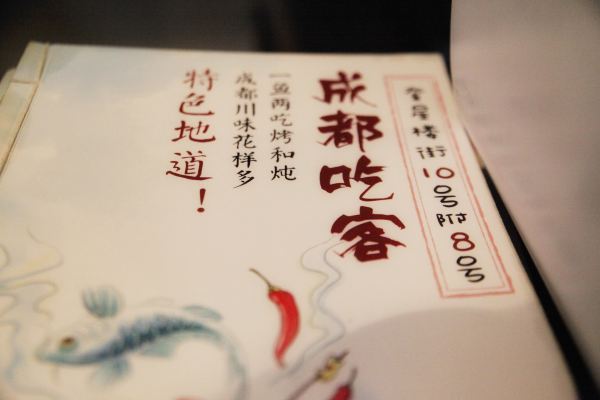 奎星楼街10号附8号
成都吃客
一鱼两吃烤和炖
成都川味花样多
特色地道！